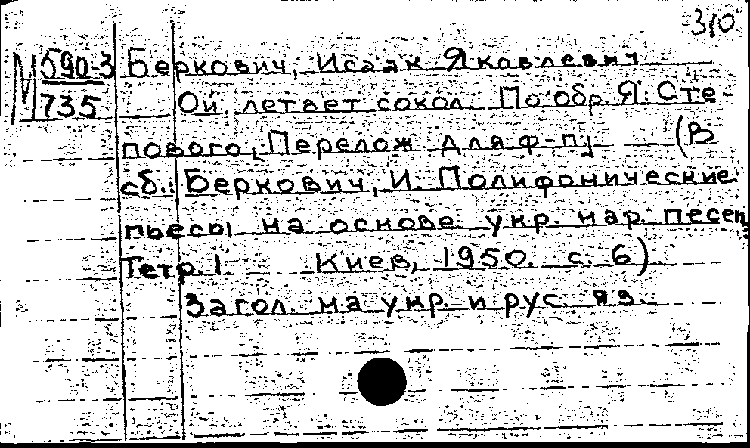 310
М 590-3 Беркович, Исаак Яковлевич
735 Ой летает сокол. По обр. Я. Сте-
пового, Перелож для ф-п. (В
сб.: Беркович, И. Полифонические
пьесы на основе укр. нар. песен
Тетр. 1 Киев, 1950. с. 6)
Загол. на укр. и рус. яз.